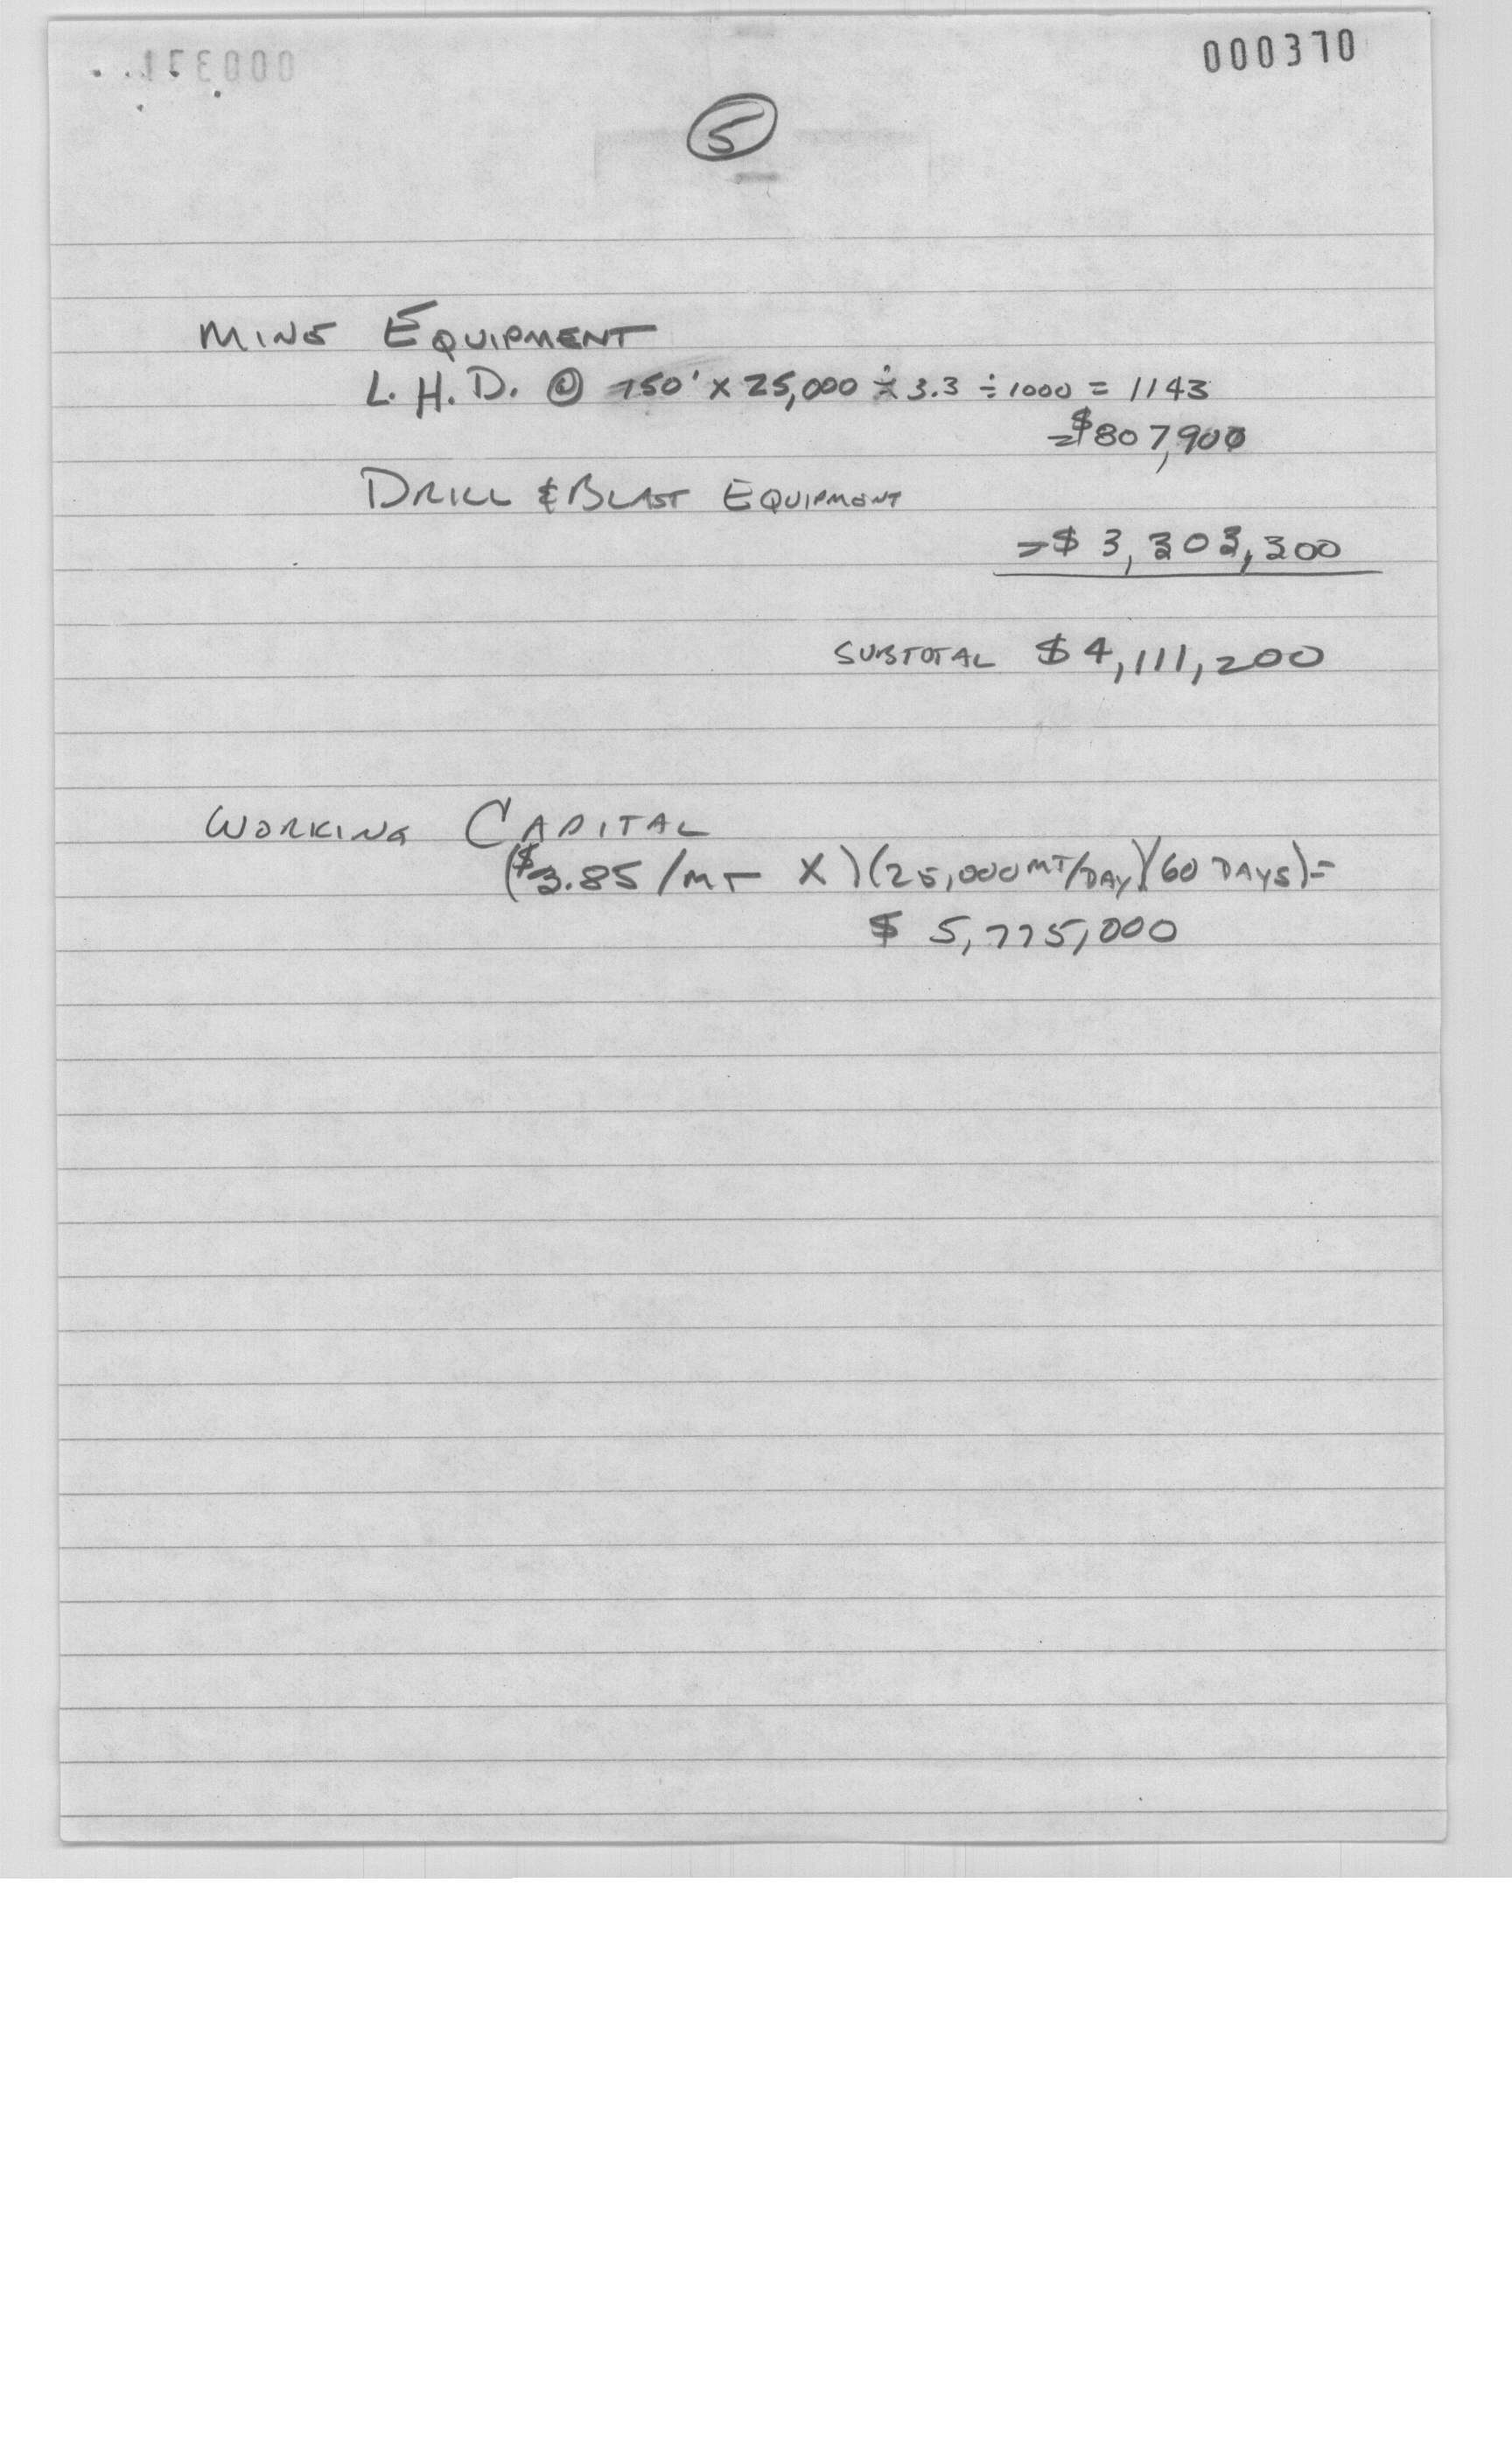 000370
5
MINE EQUIPMENT
L.H.D. @ 150' x 25,000 ÷ 3.3 ÷ 1000 = 1143
= $807,900
DRILL & BLAST EQUIPMENT
= $ 3,303,300
SUBTOTAL $4,111,200
WORKING CAPITAL
($3.85/MT X)(25,000 MT/DAY)(60 DAYS) =
$ 5,775,000